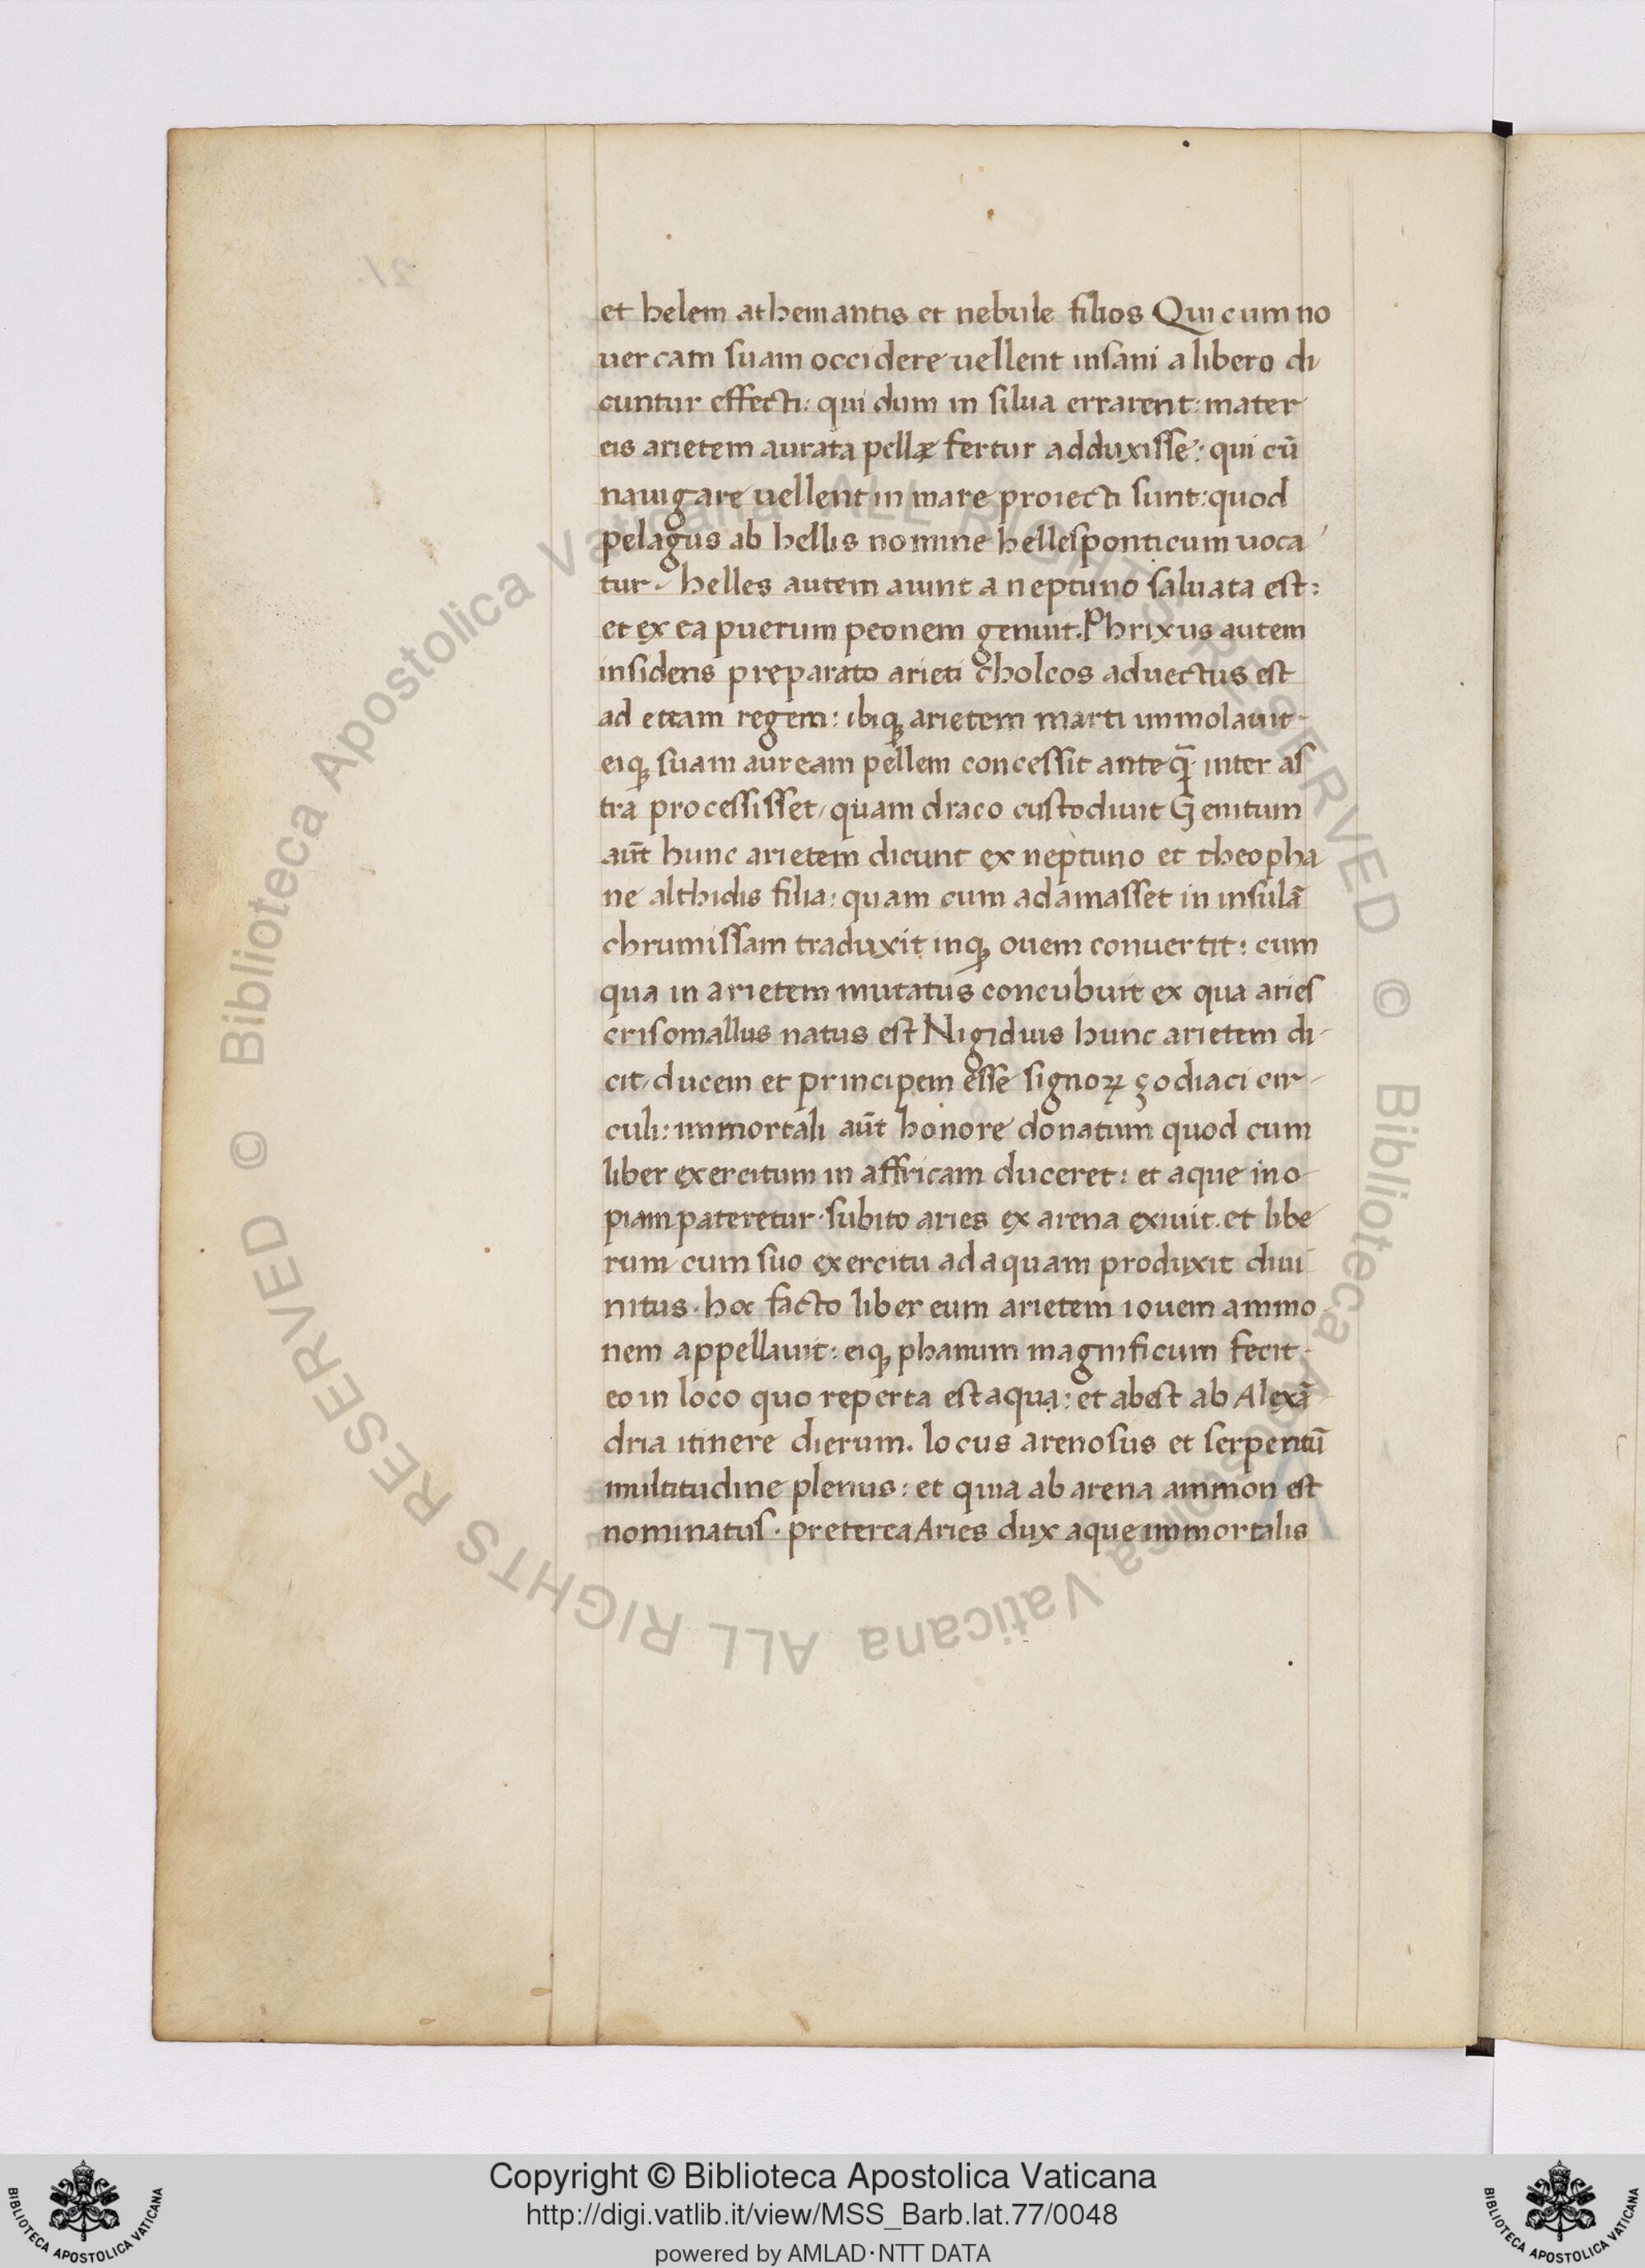 et helem athemantis et nebule filios Qui cum no
uercam suam occidere uellent insani a libero di
cuntur effecti: qui dum in silua errarent: mater
eis arietem aurata pellæ fertur adduxisse: qui cū
nauigare uellent in mare proiecti sunt: quod
pelagus ab hellis nomine hellesponticum uoca
tur. helles autem aiunt a neptuno saluata est:
et ex ea puerum peonem genuit. Phrixus autem
insidens preparato arieti cholcos aduectus est
ad ettam regem: ibiqꝫ arietem marti immolauit
eiqꝫ suam auream pellem concessit anteq̄ inter as
tra processisset, quam draco custodiuit Genitum
aūt hunc arietem dicunt ex neptuno et theopha
ne althidis filia: quam cum adamasset in insulā
chrumissam traduxit inqꝫ ouem conuertit: cum
qua in arietem mutatus concubuit ex qua aries
crisomallus natus est Nigidius hunc arietem di
cit, ducem et principem esse signoꝝ çodiaci cir
culi: immortali aūt honore donatum quod cum
liber exercitum in affricam duceret: et aque ino
piam pateretur. subito aries ex arena exiuit. et libe
rum cum suo exercitu ad aquam produxit diui
nitus. hoc facto liber eum arietem iouem ammo
nem appellauit: eiqꝫ phanum magnificum fecit
eo in loco quo reperta est aqua: et abest ab Alexā
dria itinere dierum. locus arenosus et serpentū
multitudine plenus: et quia ab arena ammon est
nominatus. preterea Aries dux aque immortalis
© Biblioteca Apostolica Vaticana ALL RIGHTS RESERVED © Biblioteca Apostolica Vaticana ALL RIGHTS RESERVED
Copyright © Biblioteca Apostolica Vaticana
http://digi.vatlib.it/view/MSS_Barb.lat.77/0048
powered by AMLAD·NTT DATA
BIBLIOTECA APOSTOLICA VATICANA
BIBLIOTECA APOSTOLICA VATICANA